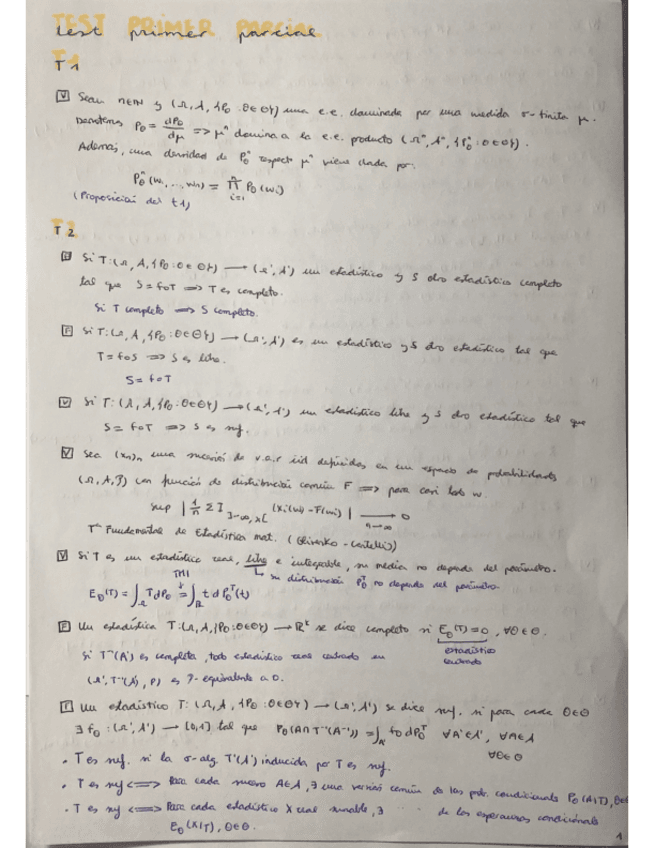 TEST PRIMER PARCIAL
test primer parcial
T1
V Sean n∈ℕ y (Ω, A, {Pθ : θ∈Θ}) una e.e. dominada por una medida σ-finita μ.
Denotemos Pθ = dPθ/dμ => μⁿ domina a la e.e. producto (Ωⁿ, Aⁿ, {Pθⁿ : θ∈Θ}).
Además, una densidad de Pθⁿ respecto μⁿ viene dada por:
Pθⁿ(w₁, ..., wn) = ∏ᵢ₌₁ⁿ Pθ(wᵢ)
(Proposición del t1)
T2
Si T: (Ω, A, {Pθ : θ∈Θ}) → (Ω', A') un estadístico y S otro estadístico completo
tal que S = f∘T => T es completo.
Si T completo => S completo.
F Si T: (Ω, A, {Pθ : θ∈Θ}) → (Ω', A') es un estadístico y S otro estadístico tal que
T = f∘S => S es libre.
S = f∘T
V Si T: (Ω, A, {Pθ : θ∈Θ}) → (Ω', A') un estadístico libre y S otro estadístico tal que
S = f∘T => S es suf.
V Sea (Xn)n una sucesión de v.a.r iid definidas en un espacio de probabilidades
(Ω, A, P) con función de distribución común F => para casi todo w.
sup | 1/n Σ I ]-∞, x[ (Xi(w)) - F(x) | → 0
n→∞
Tª Fundamental de Estadística mat. (Glivenko - Cantelli)
V Si T es un estadístico real, libre e integrable, su media no depende del parámetro.
↳ su distribución Pθᵀ no depende del parámetro
Eθ(T) = ∫Ω T dPθ = ∫ℝ t dPθᵀ(t)
F Un estadístico T: (Ω, A, {Pθ : θ∈Θ}) → ℝᵏ se dice completo si Eθ(T) = 0, ∀θ∈Θ.
estadístico
centrado
Si T⁻¹(A') es completa, todo estadístico real centrado en
(Ω', T⁻¹(A'), P) es P-equivalente a 0.
F Un estadístico T: (Ω, A, {Pθ : θ∈Θ}) → (Ω', A') se dice suf. si para cada θ∈Θ
∃ fθ : (Ω', A') → [0,1] tal que Pθ(A∩T⁻¹(A')) = ∫A' fθ dPθᵀ ∀A'∈A', ∀A∈A
∀θ∈Θ
• T es suf. si la σ-alg. T⁻¹(A') inducida por T es suf.
• T es suf <=> Para cada suceso A∈A, ∃ una versión común de las prob. condicionales Pθ(A|T), θ∈Θ
• T es suf <=> Para cada estadístico X real sumable, ∃ de las esperanzas condicionales
Eθ(X|T), θ∈Θ.
1